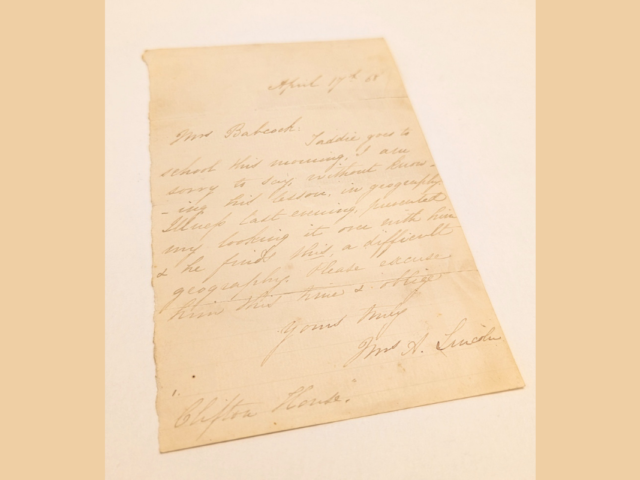 April 17th 68
Mrs Babcock.
Taddie goes to
school this morning. I am
sorry to say, without know
-ing his lesson, in geography.
Illness last evening, prevented
my looking it over with him
& he finds this, a difficult
geography. Please excuse
him this time & oblige
Yours truly
Mrs A. Lincoln
Clifton House.